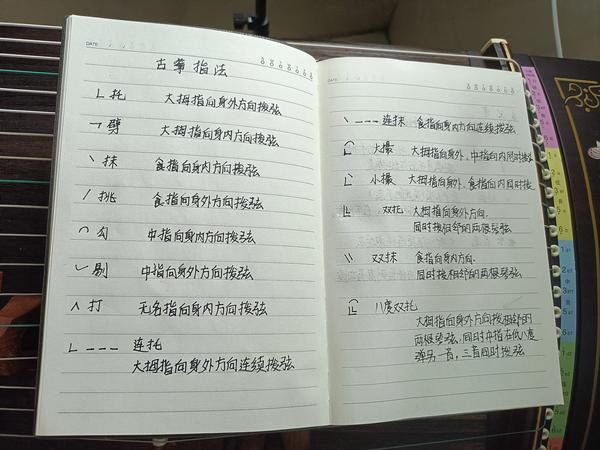 DATE
古筝指法
∟ 托 大拇指向身外方向拨弦
ㄱ 劈 大拇指向身内方向拨弦
丶 抹 食指向身内方向拨弦
/ 挑 食指向身外方向拨弦
⌒ 勾 中指向身内方向拨弦
✓ 剔 中指向身外方向拨弦
∧ 打 无名指向身内方向拨弦
∟ --- 连托
大拇指向身外方向连续拨弦
DATE
丶 --- 连抹 食指向身内方向连续拨弦
大撮 大拇指向身外,中指向内同时拨
小撮 大拇指向身外,食指向内同时拨
双托 大拇指向身外方向,
同时拨相邻的两根琴弦
〃 双抹 食指向身内方向,
同时拨相邻的两根琴弦
八度双托
大拇指向身外方向拨相邻的
两根琴弦,同时中指在低八度
弹另一音,三音同时拨弦